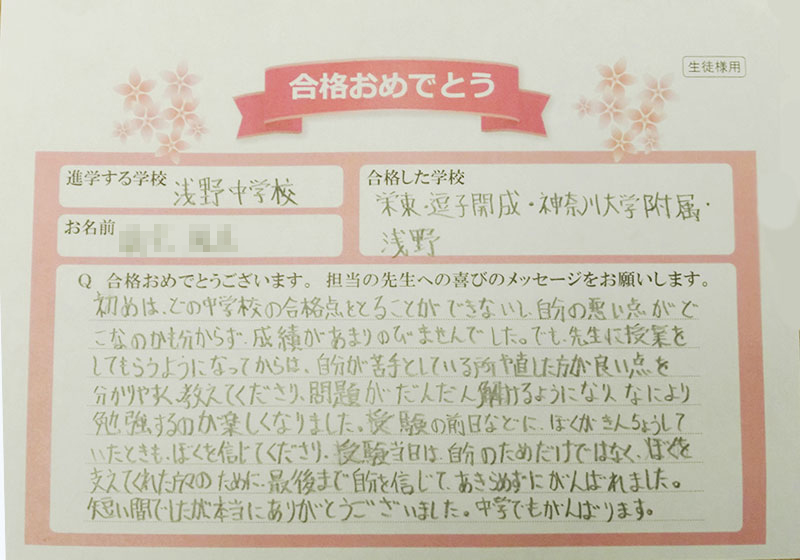 合格おめでとう
生徒様用
進学する学校 浅野中学校
合格した学校
栄東・逗子開成・神奈川大学附属・
浅野
お名前
Q 合格おめでとうございます。担当の先生への喜びのメッセージをお願いします。
初めは、どの中学校の合格点をとることができないし、自分の悪い点がど
こなのかも分からず、成績があまりのびませんでした。でも、先生に授業を
してもらうようになってからは、自分が苦手としている所や直した方が良い点を
分かりやすく、教えてくださり、問題がだんだん解けるようになり、なにより
勉強するのが楽しくなりました。受験の前日などに、ぼくがきんちょうして
いたときも、ぼくを信じてくださり、受験当日は、自分のためだけではなく、ぼくを
支えてくれた方々のために、最後まで自分を信じて、あきらめずにがんばれました。
短い間でしたが本当にありがとうございました。中学でもがんばります。